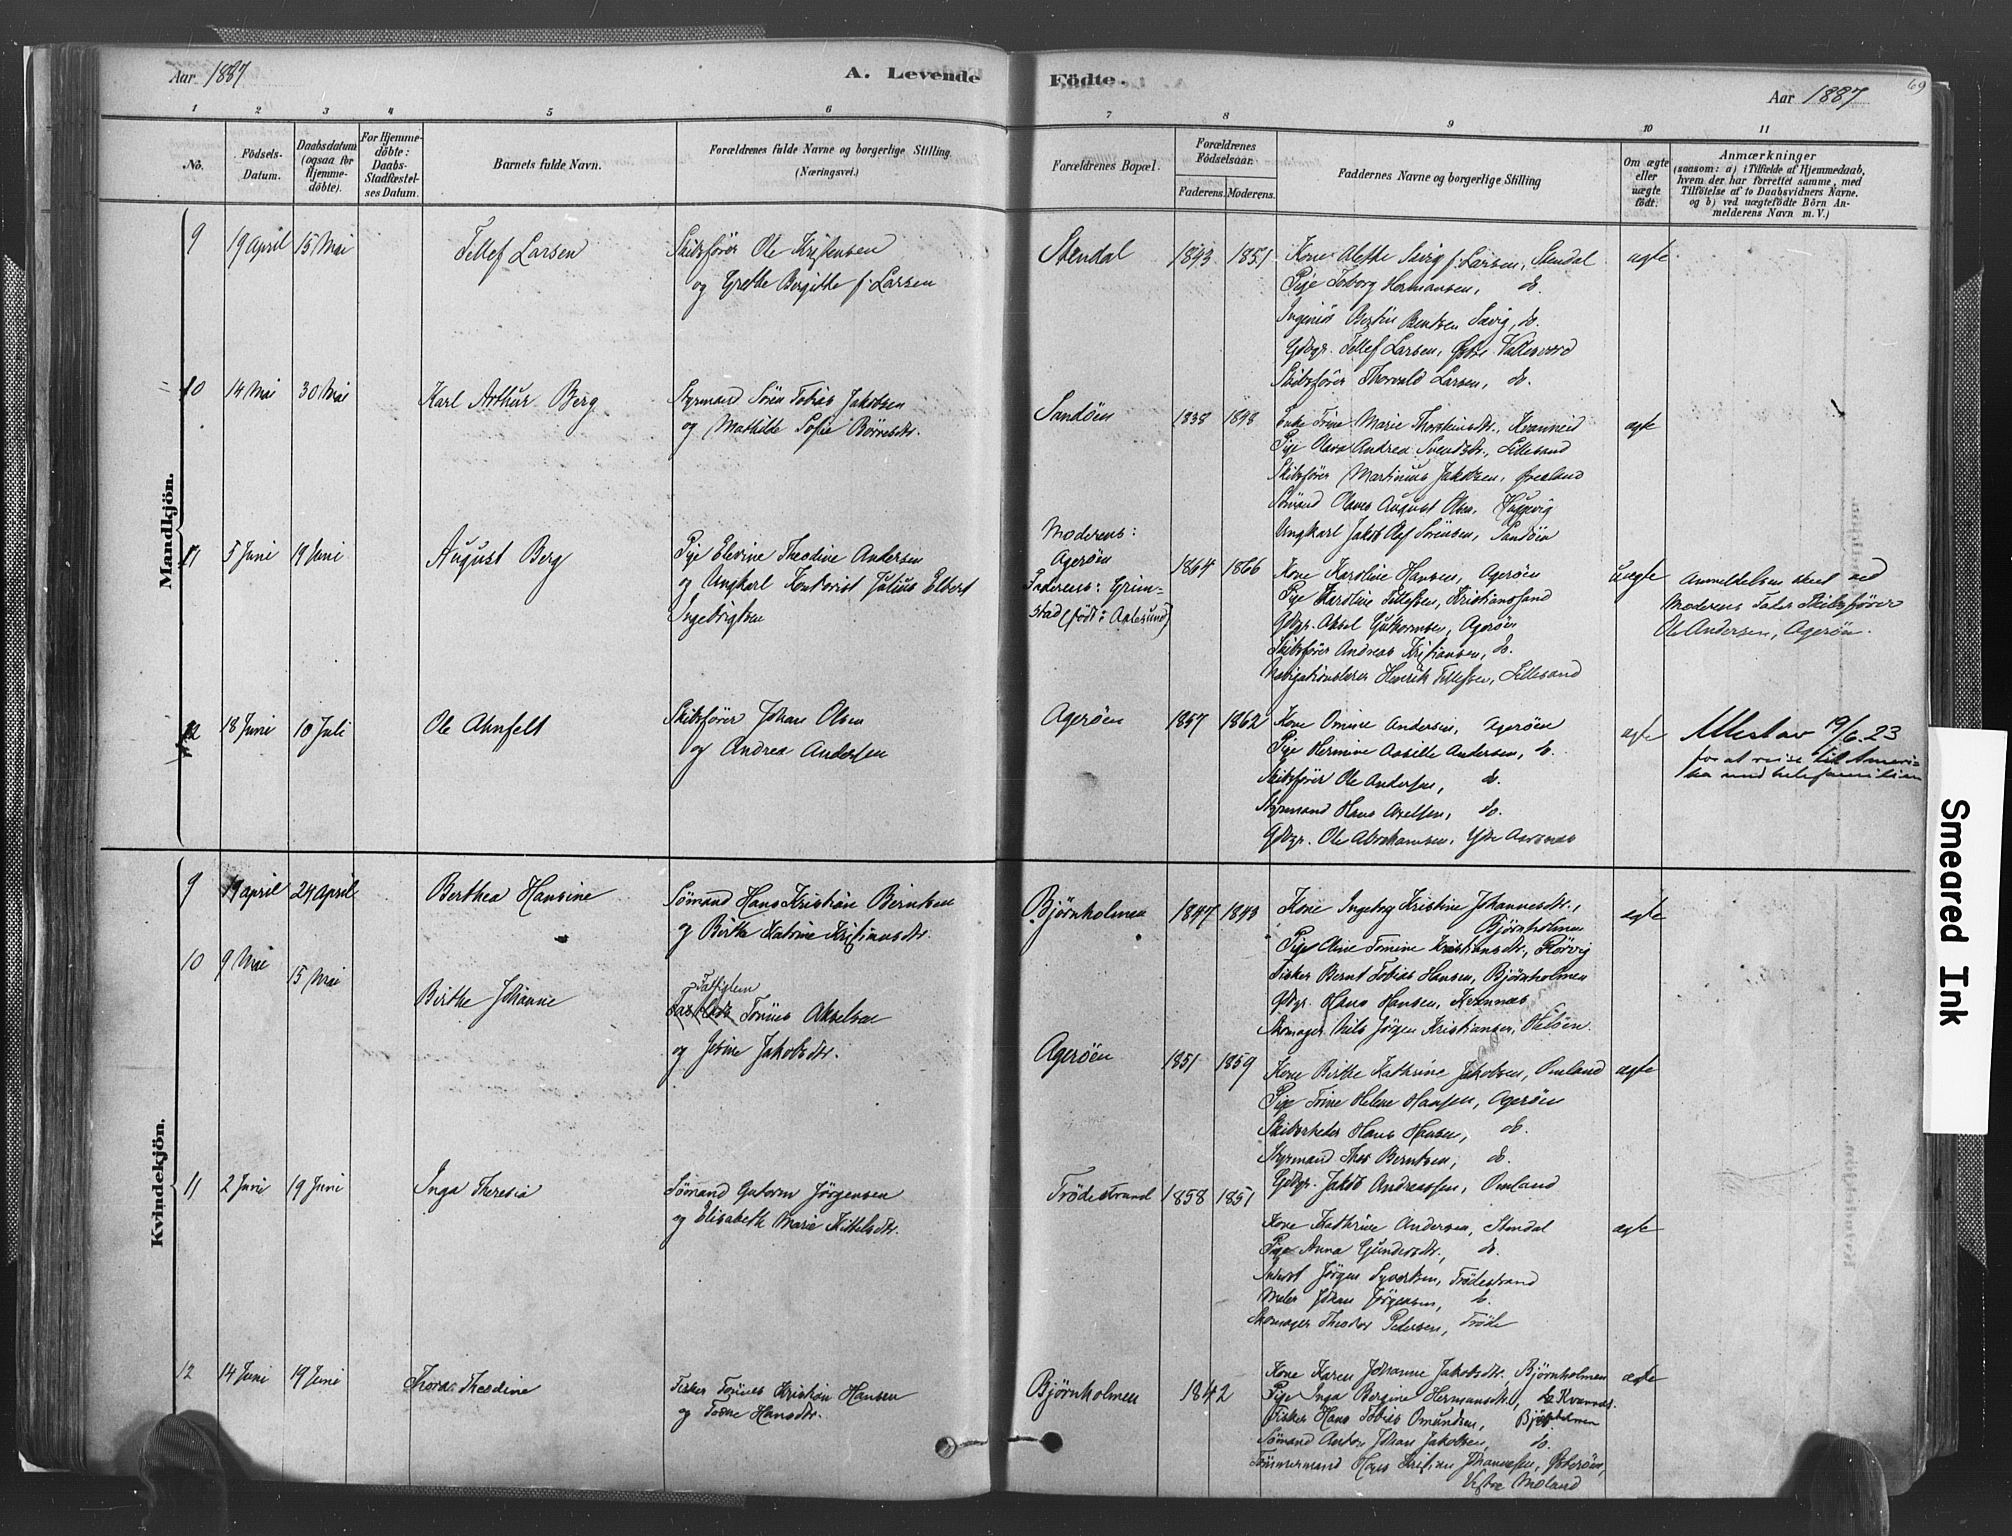 Aar 1887
A. Levende
Födte.
Aar 1887
69
1 2 3 4 5 6 7 8 9 10 11
No.
Födsels-Datum.
Daabsdatum (ogsaa for Hjemme-döbte).
For Hjemme-döbte: Daabs-Stadfæstel-ses Datum.
Barnets fulde Navn.
Forældrenes fulde Navne og borgerlige Stilling (Næringsvei.)
Forældrenes Bopæl.
Forældrenes Födselsaar.
Faderens. Moderens.
Faddernes Navne og borgerlige Stilling
Om ægte eller uægte födt.
Anmærkninger
(saasom: a) i Tilfælde af Hjemmedaab,
hvem der har forrettet samme, med
Tilföielse af to Daabsvidners Navne.
og b) ved uægtefödte Börn An-
melderens Navn m. V.)
Mandkjön.
9 19 April 15 Mai Tellef Larsen
Skibsfører Ole Kristensen
og Grethe Birgitte f. Larsen
Stendal 1843 1851
Kone Alethe f. Larsen, Stendal
Pige Torborg Hermansen, do.
Bentsen do.
Gdbgr. Tellef Larsen, Østre Vallesværd
Skibsfører Thorvald Larsen, do.
ægte
10 14 Mai 30 Mai Karl Arthur Berg
Styrmand Sören Tobias Jakobsen
og Mathilde Sofie Börresdtr.
Sandöen 1838 1848
Enke Trine Marie Thorsteinsdtr., Kvanneid
Pige Olava Andrea Svendsdtr., Lillesand
Skibsfører Martinius Jakobsen,
Sömand Olaves August Olsen,
Ungkarl Jakob Olef Sörensen, Sandöen
ægte
11 5 Juni 19 Juni August Berg
Pige Elevine Theodine Andersen
og Ungkarl Kontorist Julius Elbert
Ingebrigtsen
Moderens:
Ageröen
Faderens: Grim-
stad (födt i Aalesund)
1864 1866
Kone Karoline Hansen, Ageröen
Pige Karoline Tellefsen, Kristianssand
Gdbgr. Aksel Guthormsen, Ageröen
Skibsfører Andreas Kristiansen, do.
Navigationslærer Henrik Tellefsen, Lillesand
uægte
Anmeldelsen skeet ved
Moderens Fader Skibsfører
Ole Andersen, Ageröen.
12 18 Juni 10 Juli Ole Ahnfelt
Skibsfører Johan Olsen
og Andrea Andersen
Ageröen 1857 1862
Kone Omine Andersen, Ageröen
Pige Hermine Andersen, do.
Skibsfører Ole Andersen, do.
Styrmand Hans Axelsen, do.
Gdbgr. Ole Abrahamsen, Ytre Aarsnes
ægte
Attest av 19/6.23
for at reise til Ameri-
ka med hele familien
Kvindekjön.
9 19 April 24 April Berthea Hansine
Sömand Hans Kristian Berntsen
og Birthe Katrine Kristiansdtr.
Bjørnholmen 1847 1843
Kone Ingeborg Kristine Johannesdtr.,
Bjørnholmen
Pige Aline Tomine Kristiansdtr., Rörvig
Fisker Bernt Tobias Hansen, Bjørnholmen
Gdbgr. Hans Hansen, Kvannes
Skomager Nils Jörgen Kristiansen,
ægte
10 9 Mai 15 Mai Birthe Johanne
Fattiglem
Tönnes Akselsen
og Jesine Jakobsdtr.
Ageröen 1851 1859
Kone Birthe Kathrine Jakobsen, Omland
Pige Trine Helene Hansen, Ageröen
Skibsrheder Hans Hansen, do.
Styrmand Thor Berntsen, do.
Gdbgr. Jakob Andreassen, Omland
ægte
11 2 Juni 19 Juni Inga Theresia
Sömand Gutorm Jörgensen
og Elisabeth Marie Kittelsdtr.
Trödestrand 1858 1851
Kone Kathrine Andersen, Stendal
Pige Anna Gundersdtr., do.
Inderst Jörgen Syvertsen, Trödestrand
Maler Johan Jörgensen, do.
Skomager Theodor Petersen, Tröde
ægte
12 14 Juni 19 Juni Thora Theodine
Fisker Tönnes Kristian Hansen
og Tomine Hansdtr.
Bjørnholmen 1842
Kone Karen Johanne Jakobsdtr., Bjørnholmen
Pige Inga Bergine Hermansdtr., Kvannes
Fisker Hans Tobias Omundsen, Bjørnholmen
Sömand Anton Johan Jakobsen, do.
Tömmermand Hans Kristian Johannesen,
Vestre Moland
ægte
Smeared Ink